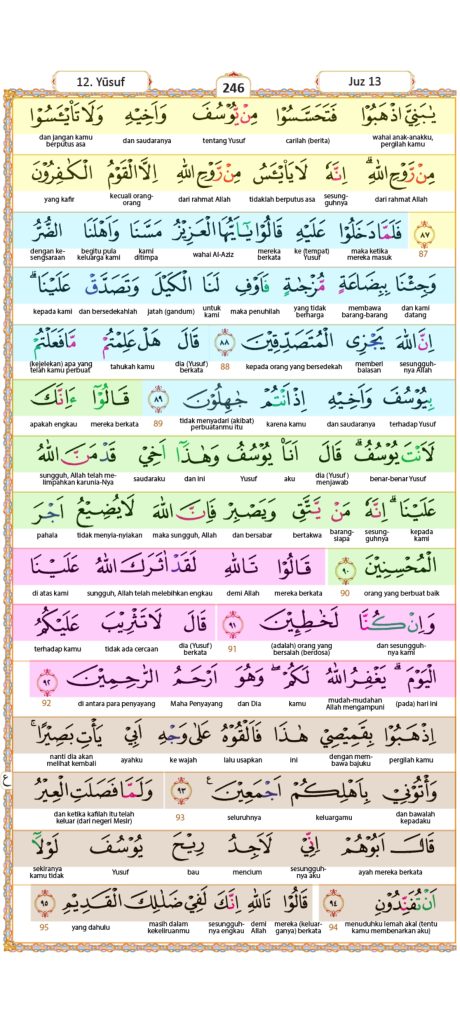 12. Yūsuf
246
Juz 13
يٰبَنِيَّ اذْهَبُوْا فَتَحَسَّسُوْا مِنْ يُّوْسُفَ وَاَخِيْهِ وَلَا تَا۟يْـَٔسُوْا
wahai anak-anakku, pergilah kamu carilah (berita) tentang Yusuf dan saudaranya dan jangan kamu berputus asa
مِنْ رَّوْحِ اللّٰهِ ۗاِنَّهٗ لَا يَا۟يْـَٔسُ مِنْ رَّوْحِ اللّٰهِ اِلَّا الْقَوْمُ الْكٰفِرُوْنَ
dari rahmat Allah sesungguhnya tidaklah berputus asa dari rahmat Allah kecuali orang-orang yang kafir
٨٧ فَلَمَّا دَخَلُوْا عَلَيْهِ قَالُوْا يٰٓاَيُّهَا الْعَزِيْزُ مَسَّنَا وَاَهْلَنَا الضُّرُّ
87 maka ketika mereka masuk ke (tempat) Yusuf mereka berkata wahai Al-Aziz kami ditimpa begitu pula keluarga kami dengan kesengsaraan
وَجِئْنَا بِبِضَاعَةٍ مُّزْجٰىةٍ فَاَوْفِ لَنَا الْكَيْلَ وَتَصَدَّقْ عَلَيْنَا ۗ
dan kami datang membawa barang-barang yang tidak berharga maka penuhilah untuk kami jatah (gandum) dan bersedekahlah kepada kami
اِنَّ اللّٰهَ يَجْزِى الْمُتَصَدِّقِيْنَ ٨٨ قَالَ هَلْ عَلِمْتُمْ مَّا فَعَلْتُمْ
sesungguhnya Allah memberi balasan kepada orang yang bersedekah 88 dia (Yusuf) berkata tahukah kamu (kejelekan) apa yang telah kamu perbuat
بِيُوْسُفَ وَاَخِيْهِ اِذْ اَنْتُمْ جٰهِلُوْنَ ٨٩ قَالُوْٓا ءَاِنَّكَ
terhadap Yusuf dan saudaranya karena kamu tidak menyadari (akibat) perbuatanmu itu 89 mereka berkata apakah engkau
لَاَنْتَ يُوْسُفُ ۗقَالَ اَنَا۠ يُوْسُفُ وَهٰذَآ اَخِيْ قَدْ مَنَّ اللّٰهُ
benar-benar Yusuf dia (Yusuf) menjawab aku Yusuf dan ini saudaraku sungguh, Allah telah melimpahkan karunia-Nya
عَلَيْنَا ۗاِنَّهٗ مَنْ يَّتَّقِ وَيَصْبِرْ فَاِنَّ اللّٰهَ لَا يُضِيْعُ اَجْرَ
kepada kami sesungguhnya barangsiapa bertakwa dan bersabar maka sungguh, Allah tidak menyia-nyiakan pahala
الْمُحْسِنِيْنَ ٩٠ قَالُوْا تَاللّٰهِ لَقَدْ اٰثَرَكَ اللّٰهُ عَلَيْنَا
orang yang berbuat baik 90 mereka berkata demi Allah sungguh, Allah telah melebihkan engkau di atas kami
وَاِنْ كُنَّا لَخٰطِـِٕيْنَ ٩١ قَالَ لَا تَثْرِيْبَ عَلَيْكُمُ
dan sesungguhnya kami (adalah) orang yang bersalah (berdosa) 91 dia (Yusuf) berkata tidak ada cercaan terhadap kamu
الْيَوْمَ ۗيَغْفِرُ اللّٰهُ لَكُمْ ۖوَهُوَ اَرْحَمُ الرّٰحِمِيْنَ ٩٢
(pada) hari ini mudah-mudahan Allah mengampuni kamu dan Dia Maha Penyayang di antara para penyayang 92
اِذْهَبُوْا بِقَمِيْصِيْ هٰذَا فَاَلْقُوْهُ عَلٰى وَجْهِ اَبِيْ يَأْتِ بَصِيْرًا ۚ
pergilah kamu dengan membawa bajuku ini lalu usapkan ke wajah ayahku nanti dia akan melihat kembali
ع
وَأْتُوْنِيْ بِاَهْلِكُمْ اَجْمَعِيْنَ ۚ ٩٣ وَلَمَّا فَصَلَتِ الْعِيْرُ
dan bawalah kepadaku keluargamu seluruhnya 93 dan ketika kafilah itu telah keluar (dari negeri Mesir)
قَالَ اَبُوْهُمْ اِنِّيْ لَاَجِدُ رِيْحَ يُوْسُفَ لَوْلَآ
ayah mereka berkata sesungguhnya aku mencium bau Yusuf sekiranya kamu tidak
اَنْ تُفَنِّدُوْنِ ٩٤ قَالُوْا تَاللّٰهِ اِنَّكَ لَفِيْ ضَلٰلِكَ الْقَدِيْمِ ٩٥
menuduhku lemah akal (tentu kamu membenarkan aku) 94 mereka (keluarganya) berkata demi Allah sesungguhnya engkau masih dalam kekeliruanmu yang dahulu 95